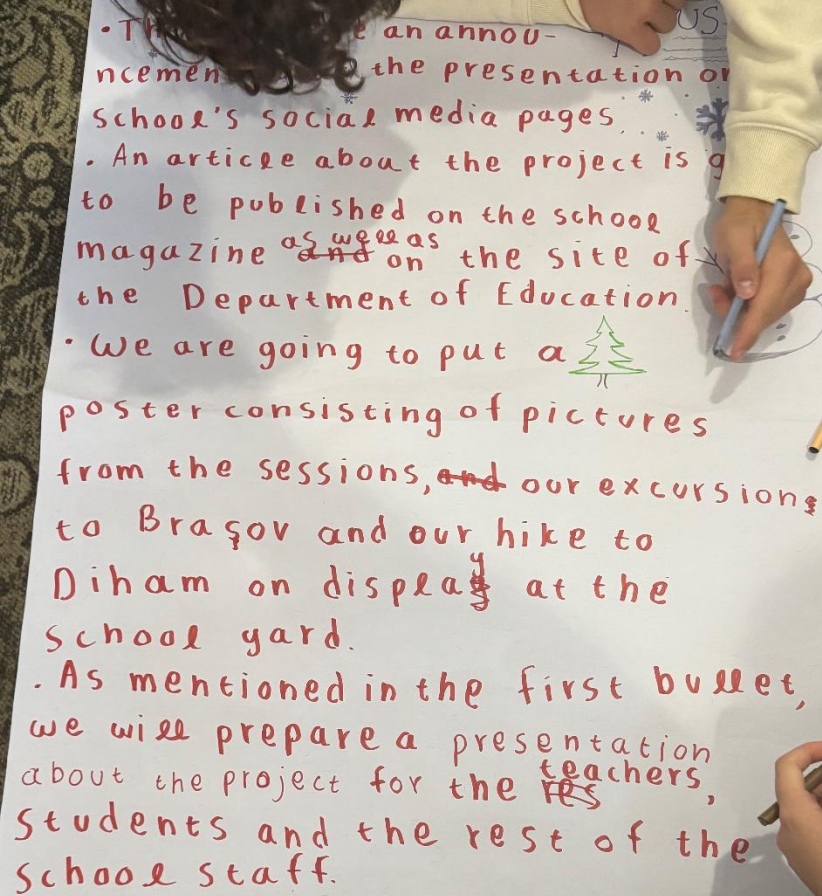 US
e an annou-
ncemen the presentation on
school's social media pages.
. An article about the project is g
to be published on the school
magazine as well as on the site of
the Department of Education.
· We are going to put a
poster consisting of pictures
from the sessions, our excursions
to Brașov and our hike to
Diham on display at the
school yard.
. As mentioned in the first bullet,
we will prepare a presentation
about the project for the teachers,
students and the rest of the
school staff.